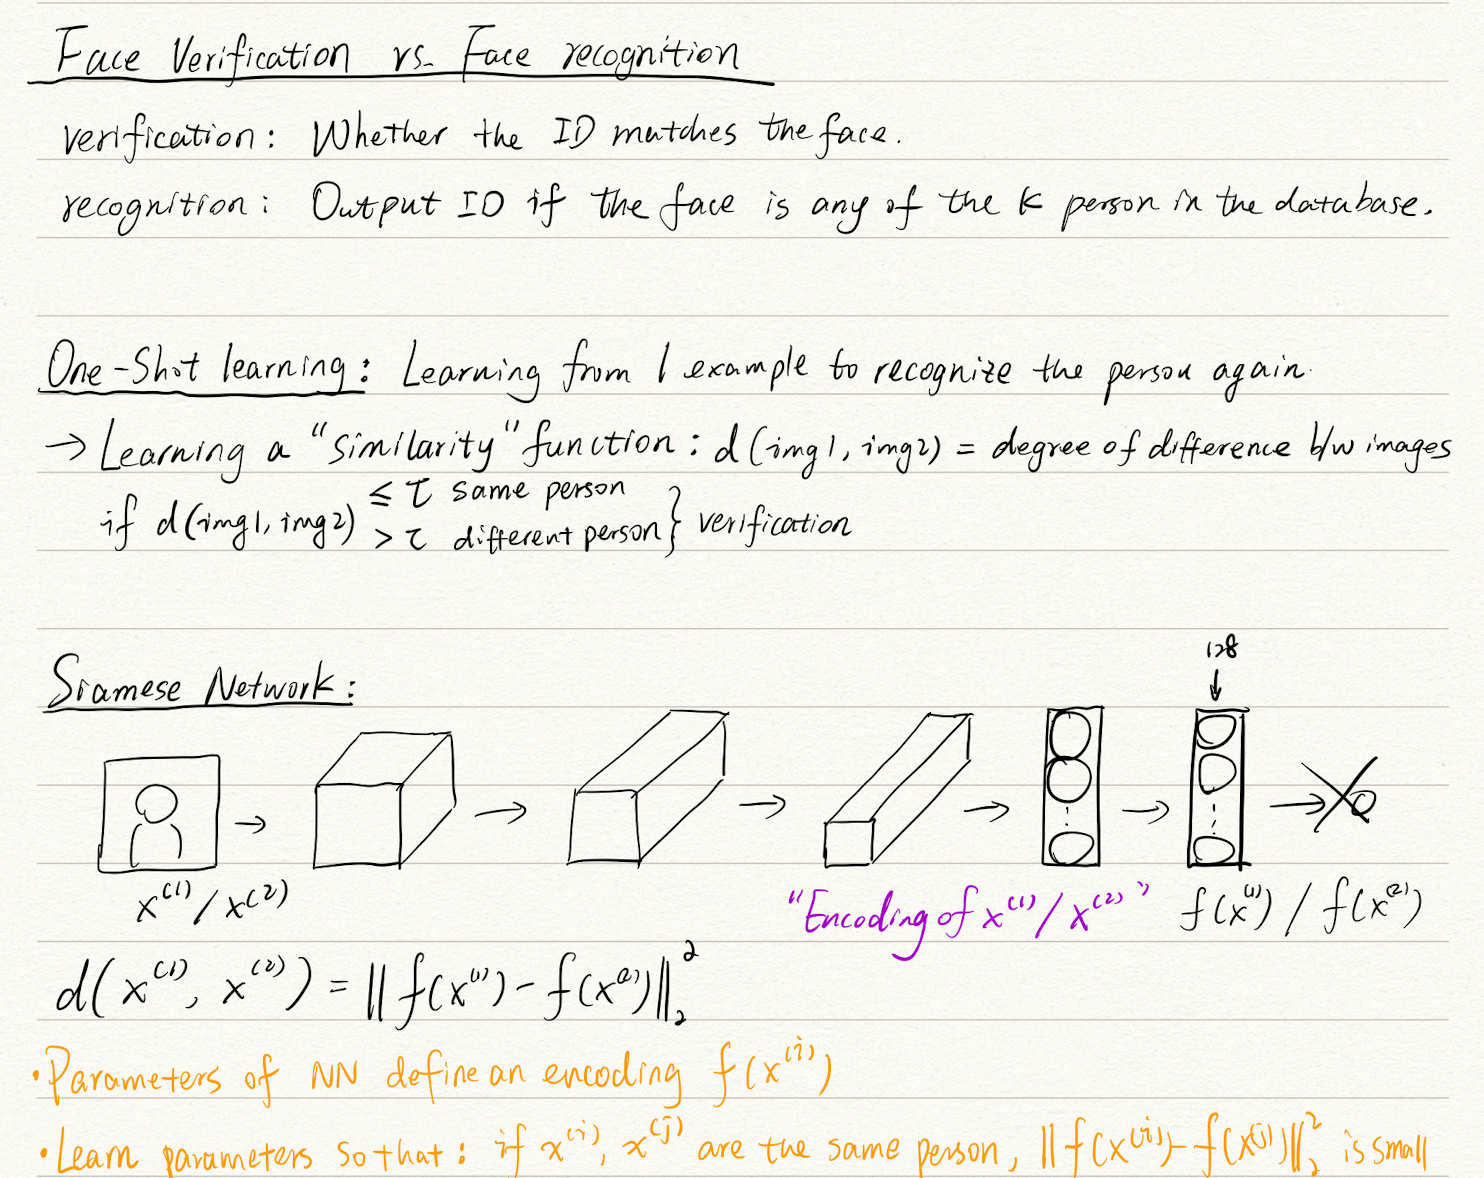 Face Verification vs. Face recognition
verification: Whether the ID matches the face.
recognition: Output ID if the face is any of the K person in the database.
One-Shot learning: Learning from 1 example to recognize the person again.
→ Learning a "similarity" function: d(img1, img2) = degree of difference b/w images
if d(img1, img2) ≤ τ same person
> τ different person } verification
Siamese Network:
128
x⁽¹⁾/x⁽²⁾
"Encoding of x⁽¹⁾/x⁽²⁾"
f(x⁽¹⁾) / f(x⁽²⁾)
d(x⁽¹⁾, x⁽²⁾) = ||f(x⁽¹⁾) - f(x⁽²⁾)||₂²
·Parameters of NN define an encoding f(x⁽ⁱ⁾)
·Learn parameters so that: if x⁽ⁱ⁾, x⁽ʲ⁾ are the same person, ||f(x⁽ⁱ⁾) - f(x⁽ʲ⁾)||₂² is small